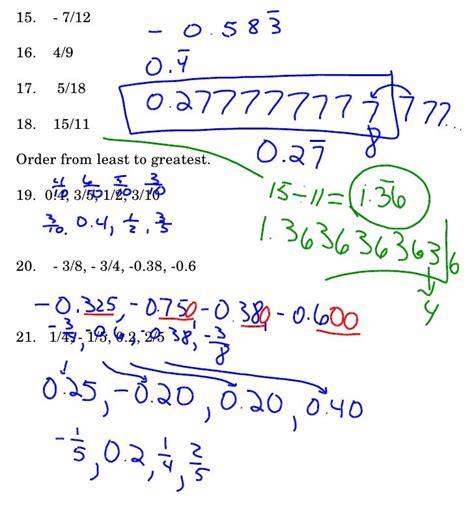 15. - 7/12 - 0.583̅
16. 4/9 0.4̅
17. 5/18 0.27777777 7 777...
8
18. 15/11 0.27̅
Order from least to greatest.
15÷11= 1.3̅6̅
19. 0.4, 3/5, 1/2, 3/10
4/10 6/10 5/10 3/10
3/10, 0.4, 1/2, 3/5
1.363636363|6
4
20. - 3/8, - 3/4, -0.38, -0.6
-0.325, -0.750 -0.380 -0.600
-3/4, -0.6, -0.38, -3/8
21. 1/4, - 1/5, 0.2, 2/5
0.25, -0.20, 0.20, 0.40
-1/5, 0.2, 1/4, 2/5